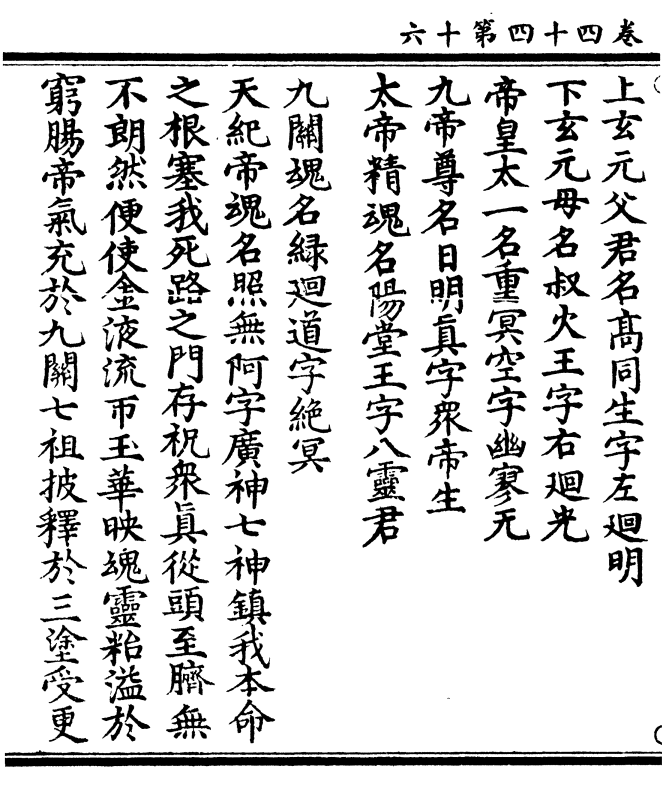 卷四十四第十六
上玄元父君名高同生字左廻明
下玄元母名叔火王字右廻光
帝皇太一名重冥空字幽寥无
九帝尊名日明真字衆帝生
太帝精魂名陽堂王字八靈君
九關魂名緑廻道字絶冥
天紀帝魂名照無阿字廣神七神鎮我本命
之根塞我死路之門存祝衆真從頭至臍無
不朗然便使金液流帀玉華映魂靈粭溢於
窮腸帝氣充於九關七祖披釋於三塗受更